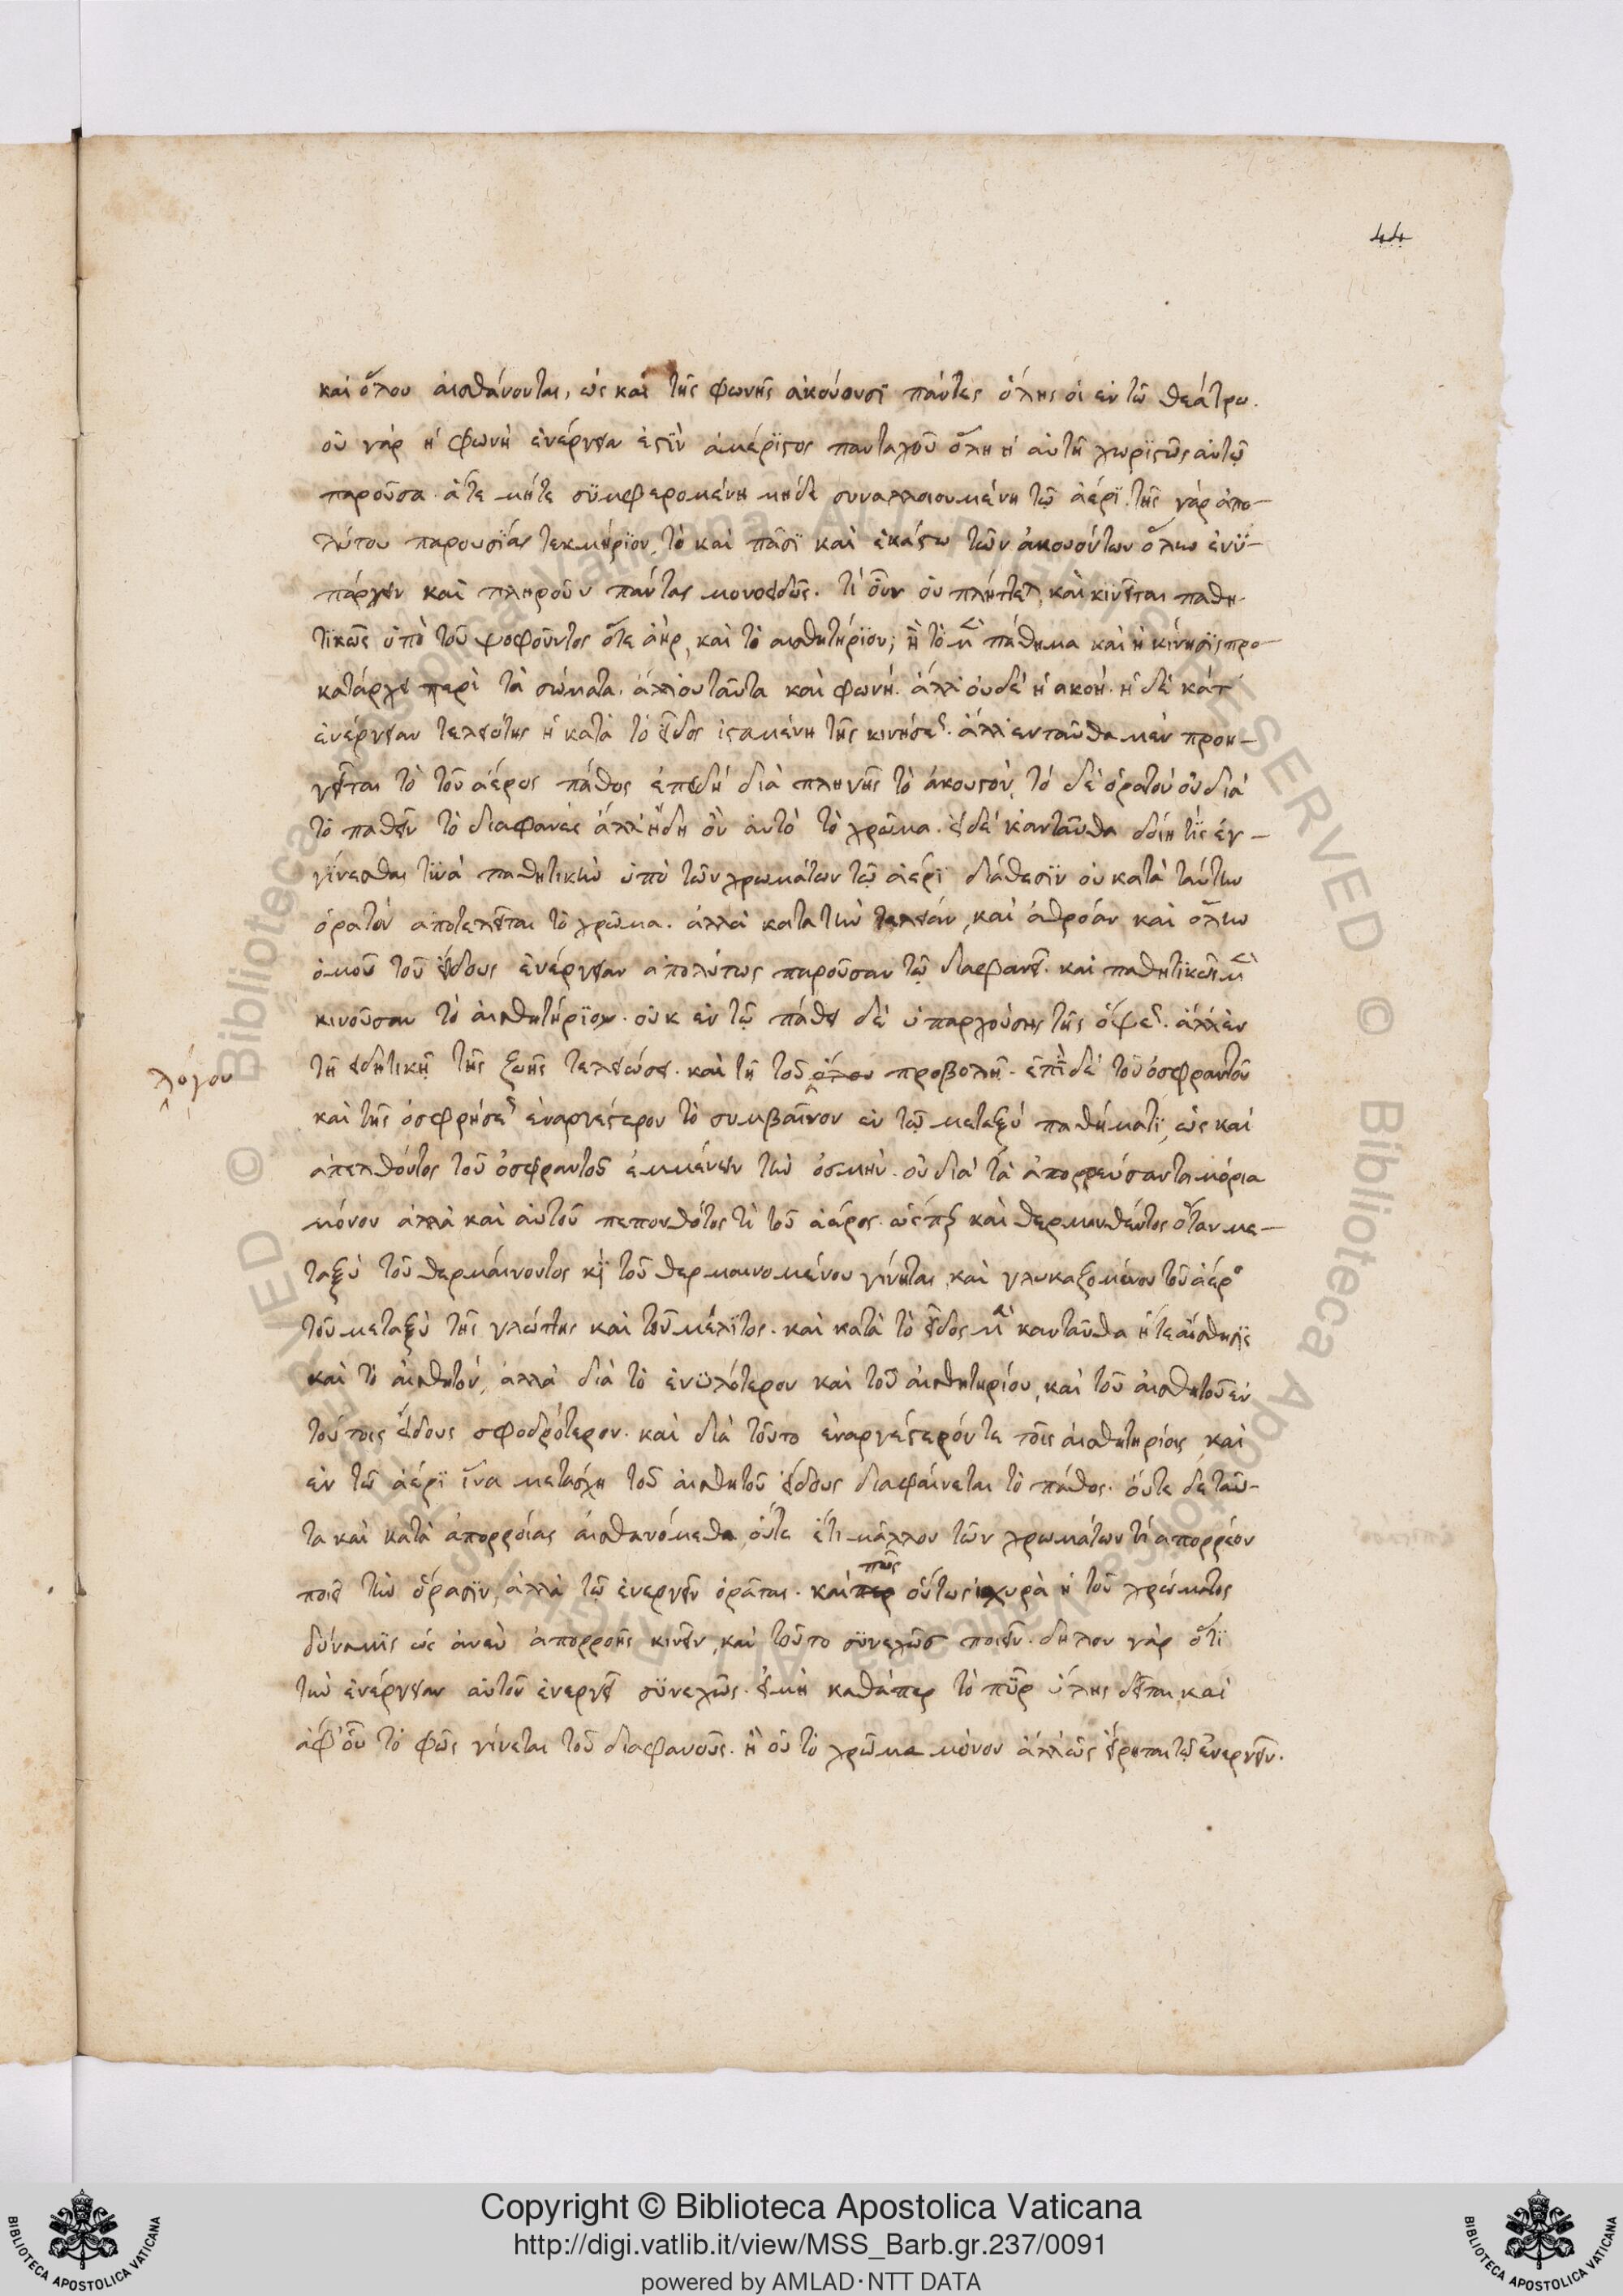 44
καὶ ὅλου αἰσθάνονται, ὡς καὶ τῆς φωνῆς ἀκούουσϊ πάντες ὅλης οἱ ἐν τῶ θεάτρω.
οὐ γὰρ ἡ φωνὴ ἐνέργεια ἐστϊν ἀμέρϊστος πανταχοῦ ὅλη ἡ αὐτὴ χωρϊστῶς αὐτῶ
παροῦσα ἅτε μήτε σϋμφερομένη μηδὲ συναλλοιουμένη τῶ ἀέρϊ. τῆς γὰρ ἀπο-
λύτου παρουσϊας τεκμήρϊον, τὸ καὶ πᾶσϊ καὶ ἑκάστω τῶν ἀκουόντων ὅλην ἐνϋ-
πάρχειν καὶ πληροῦν παντας μονοειδῶς. τί οὖν οὐ πλήττεται, καὶ κϊνεῖται παθη-
τϊκῶς ὑπὸ τοῦ ψοφοῦντος ὅτε ἀὴρ, καὶ τὸ αισθητήρϊον; ἢ τὸ μὲν πάθημα καὶ ἡ κίνησϊς προ-
κατάρχει περὶ τὰ σώματα. ἀλλ' οὐ ταῦτα καὶ φωνή. ἀλλ' οὐδὲ ἡ ακοή. ἡ δὲ κάτ
ἐνέργειαν τελειότης ἡ κατὰ τὸ εἶδος ἱσταμένη τῆς κινήσεως. ἀλλ' ενταῦθα μὲν προη-
γεῖται τὸ τοῦ αέρος πάθος ἐπειδὴ διὰ πληγῆς τὸ ἀκουστὸν, τὸ δὲ ὁρατὸν οὐ διὰ
τὸ παθεῖν τὸ διαφανὲς ἀλλ' ἤδη ὂν αὐτὸ τὸ χρῶμα. εἰ δὲ κἀνταῦθα δοίη τϊς ἐγ-
γίνεσθαι τϊνὰ παθητικὴν ὑπὸ τῶν χρωμάτων τῶ ἀέρϊ διάθεσϊν οὐ κατὰ ταύτην
ὁρατὸν αποτελεῖται τὸ χρῶμα. ἀλλὰ κατα τὴν τελείαν, καὶ ἀθρόαν καὶ ὅλην
ὁμοῦ τοῦ εἴδους ἐνέργειαν απολύτως παροῦσαν τῶ διαφανεῖ. καὶ παθητϊκῶς μὲν
κινοῦσαν τὸ αἰσθητήρϊον. οὐκ ἐν τῶ πάθει δὲ ὑπαρχούσης τῆς ὄψεως. ἀλλ' ἐν
τῆ εἰδητικῆ τῆς ζωῆς τελειώσει. καὶ τῆ τοῦ ὅλου προβολῆ. ἐπὶ δὲ τοῦ ὀσφραντοῦ
λόγου
καὶ τῆς ὀσφρήσεως ἐναργέστερον τὸ συμβαῖνον ἐν τῶ μεταξὺ παθήματϊ, ὡς καὶ
ἀπελθόντος τοῦ ὀσφραντοῦ ἐμμένειν τὴν ὀσμὴν. οὐ διὰ τὰ ἀπορρεύσαντα μόρια
μόνον ἀλλὰ καὶ αὐτοῦ πεπονθότος τὶ τοῦ ἀέρος. ὥσπερ καὶ θερμανθέντος ὅταν με-
ταξὺ τοῦ θερμαίνοντος καὶ τοῦ θερμαινομένου γίνηται, καὶ γλυκαζομένου τοῦ ἀέρος
τοῦ μεταξὺ τῆς γλώττης καὶ τοῦ μέλϊτος. καὶ κατὰ τὸ εἶδος μὲν κανταῦθα ἥ τε αἴσθησϊς
καὶ τὸ αἰσθητὸν, ἀλλὰ διὰ τὸ ἐνϋλότερον καὶ τοῦ αἰσθητηρίου, καὶ τοῦ αἰσθητοῦ ἐν
τούτοις εἴδους σφοδρότερον. καὶ διὰ τοῦτο ἐναργέστερόν τε τοῖς αἰσθητηρίοις καὶ
ἐν τῶ ἀέρϊ ἵνα μετάσχη τοῦ αἰσθητοῦ εἴδους διαφαίνεται τὸ πάθος. οὔτε δὲ ταῦ-
τα καὶ κατὰ ἀπορροίας αἰσθανόμεθα, οὔτε ἔτι μᾶλλον τῶν χρωμάτων τὶ απορρέον
ποιεῖ τὴν ὅρασϊν, ἀλλὰ τῶ ἐνεργεῖν ὁρᾶται. καὶ πῶς οὕτως ἰσχυρὰ ἡ τοῦ χρώματος
δύναμϊς ὡς ἀνευ ἀπορροῆς κινεῖν, καὶ τοῦτο σϋνεχῶς ποιεῖν. δῆλον γὰρ ὅτϊ
τὴν ἐνέργειαν αὐτοῦ ἐνεργεῖ σϋνεχῶς. εἰ μὴ καθάπερ τὸ πῦρ ὕλης δεῖται, καὶ
ἀφ' οὗ τὸ φῶς γίνεται τοῦ διαφανοῦς. ἢ οὐ τὸ χρῶμα μόνον ἀλλ' ὡς εἴρηται τῶ ἐνεργεῖν.
Copyright © Biblioteca Apostolica Vaticana
http://digi.vatlib.it/view/MSS_Barb.gr.237/0091
powered by AMLAD·NTT DATA